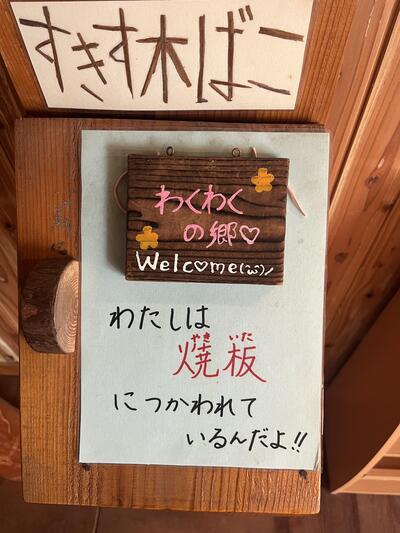 すきす木ばこ
わくわく
の郷♡
Welc♡me(^^)/
わたしは
やき いた
焼板
につかわれて
いるんだよ!!